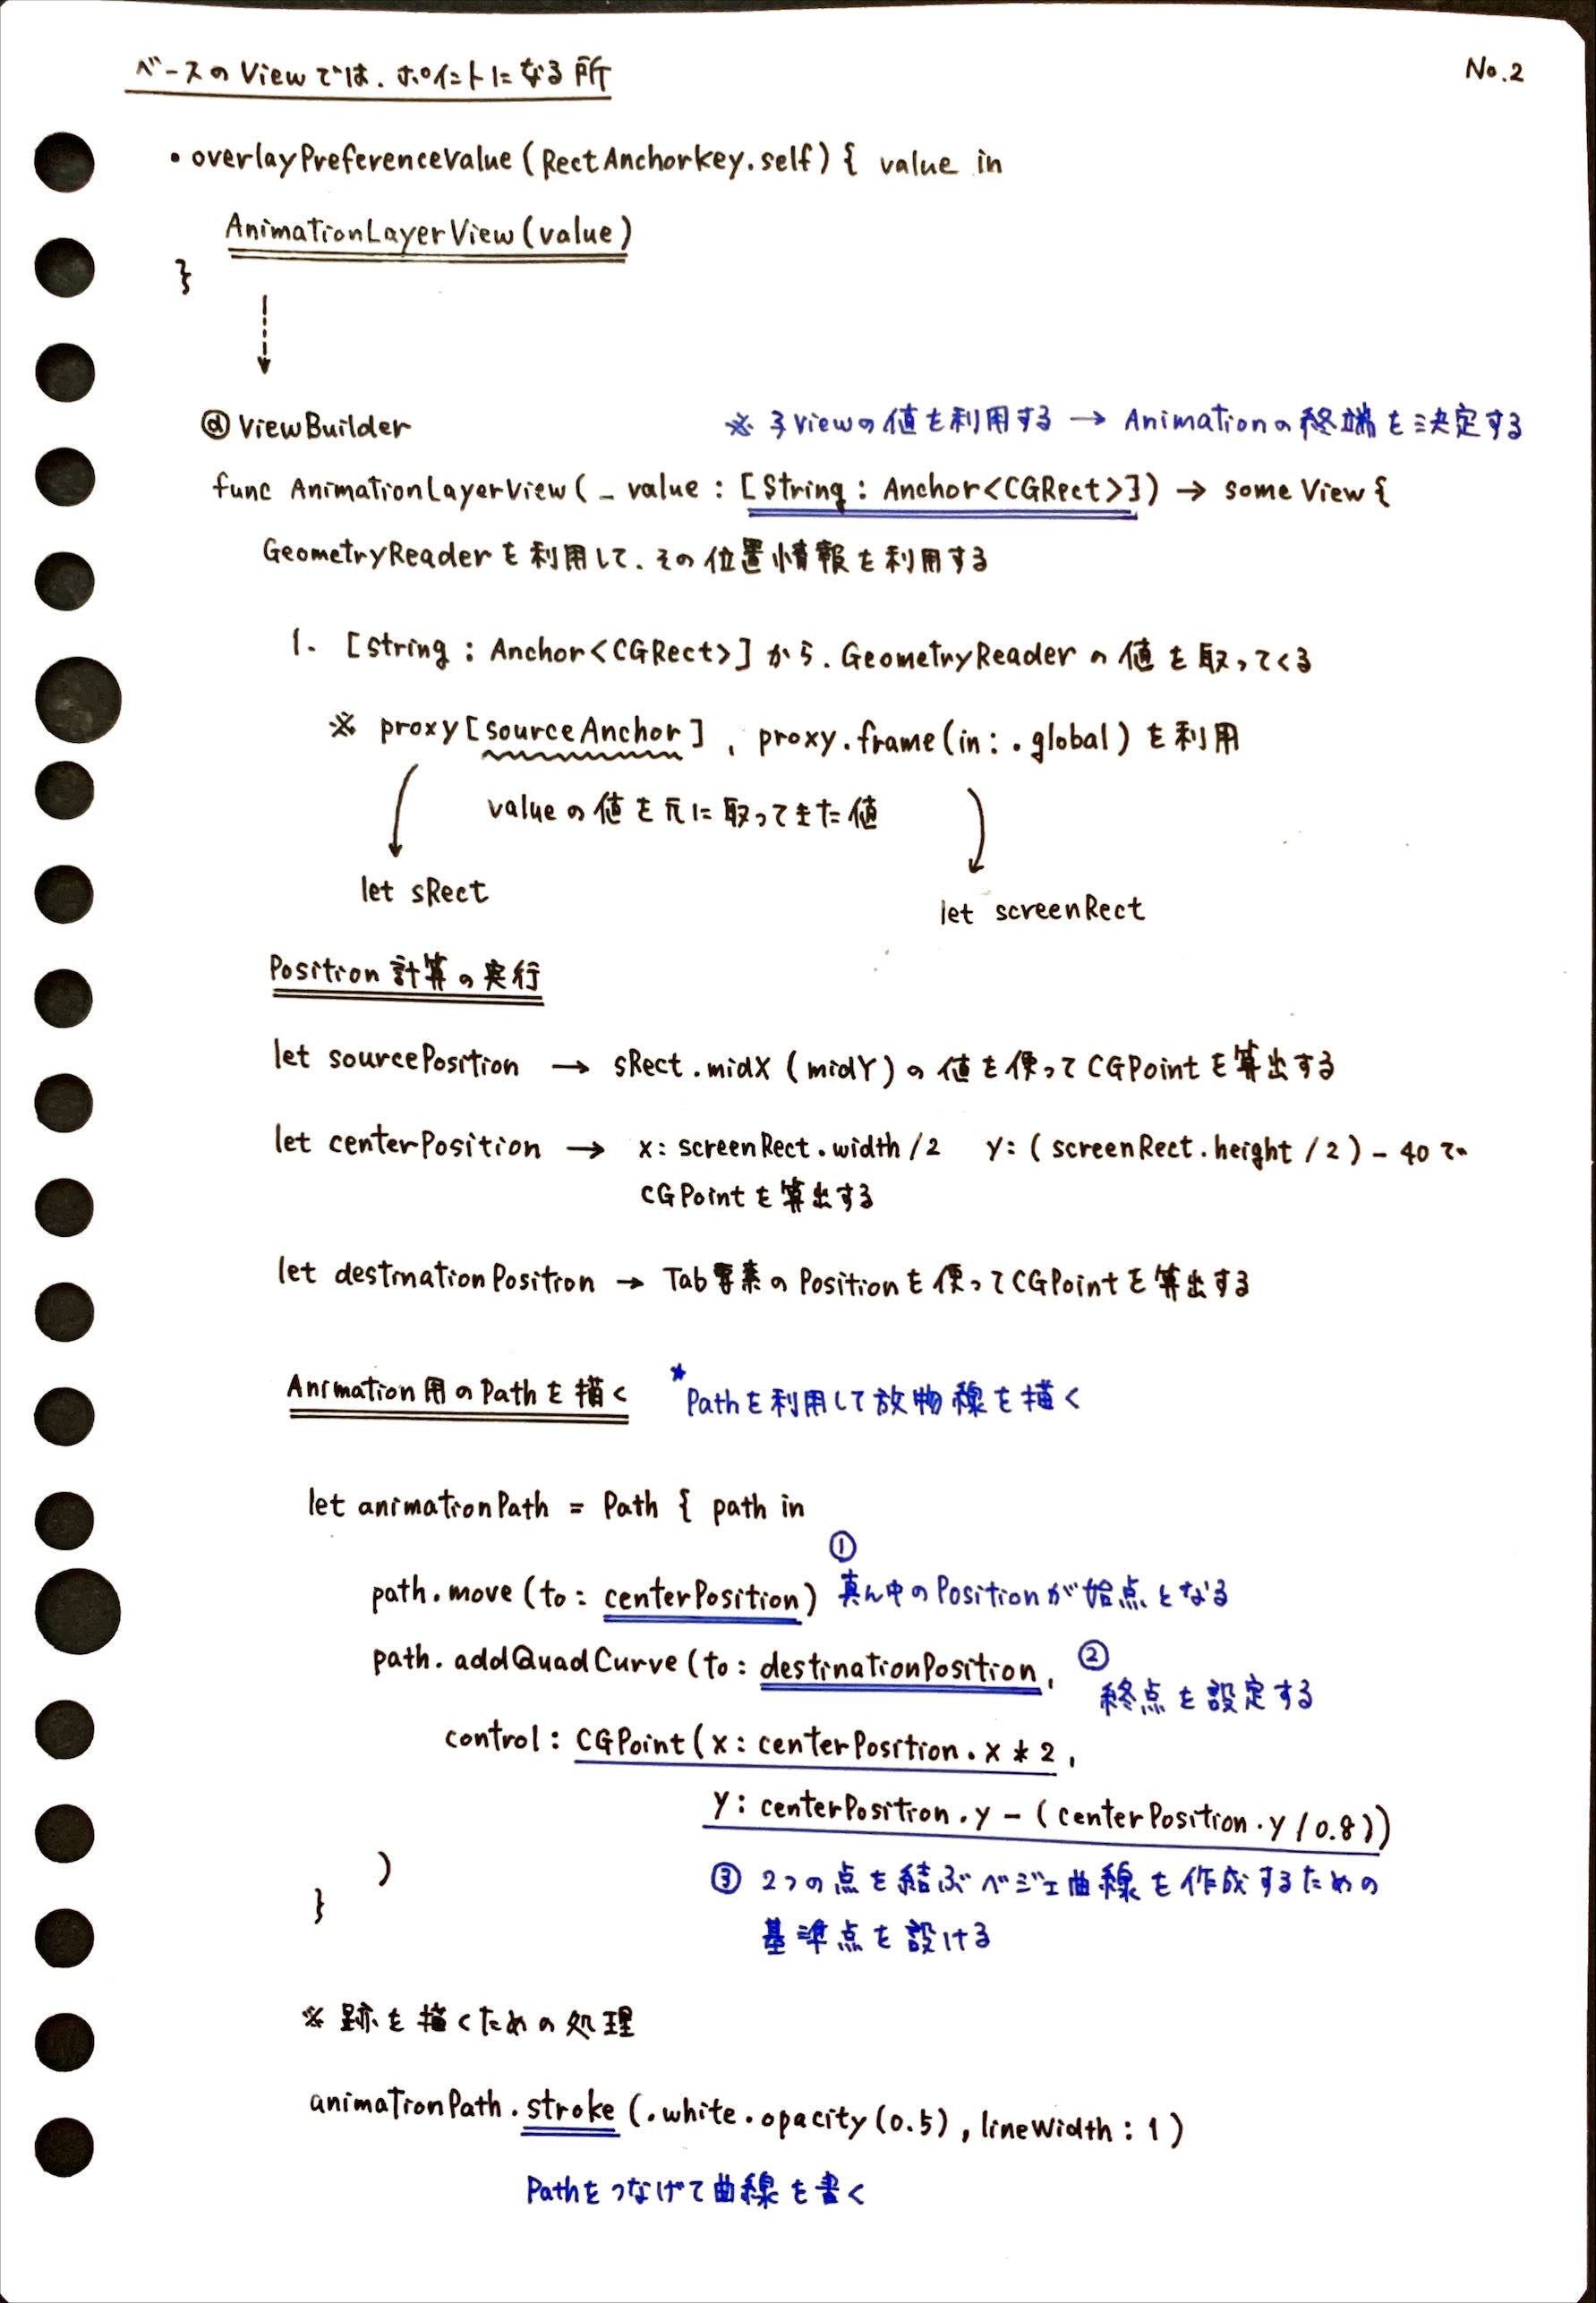 ベースのViewでは、ポイントになる所
No.2
・overlayPreferenceValue(RectAnchorKey.self){ value in
AnimationLayerView(value)
}
@ViewBuilder
※ 子Viewの値を利用する → Animationの終端を決定する
func AnimationLayerView(_ value : [String : Anchor<CGRect>]) → some View {
GeometryReaderを利用して、その位置情報を利用する
1. [String : Anchor<CGRect>]から、GeometryReaderの値を取ってくる
※ proxy[sourceAnchor]、proxy.frame(in: .global)を利用
valueの値を元に取ってきた値
let sRect
let screenRect
Position計算の実行
let sourcePosition → sRect.midX (midY)の値を使ってCGPointを算出する
let centerPosition → x: screenRect.width/2 y: (screenRect.height/2)-40で
CGPointを算出する
let destinationPosition → Tab要素のPositionを使ってCGPointを算出する
Animation用のPathを描く
★Pathを利用して放物線を描く
let animationPath = Path { path in
①
path.move(to: centerPosition) 真ん中のPositionが始点となる
path.addQuadCurve(to: destinationPosition, ②
終点を設定する
control: CGPoint(x: centerPosition.x * 2,
y: centerPosition.y - (centerPosition.y / 0.8))
)
③ 2つの点を結ぶベジェ曲線を作成するための
}
基準点を設ける
※ 跡を描くための処理
animationPath.stroke(.white.opacity(0.5), lineWidth: 1)
Pathをつなげて曲線を書く